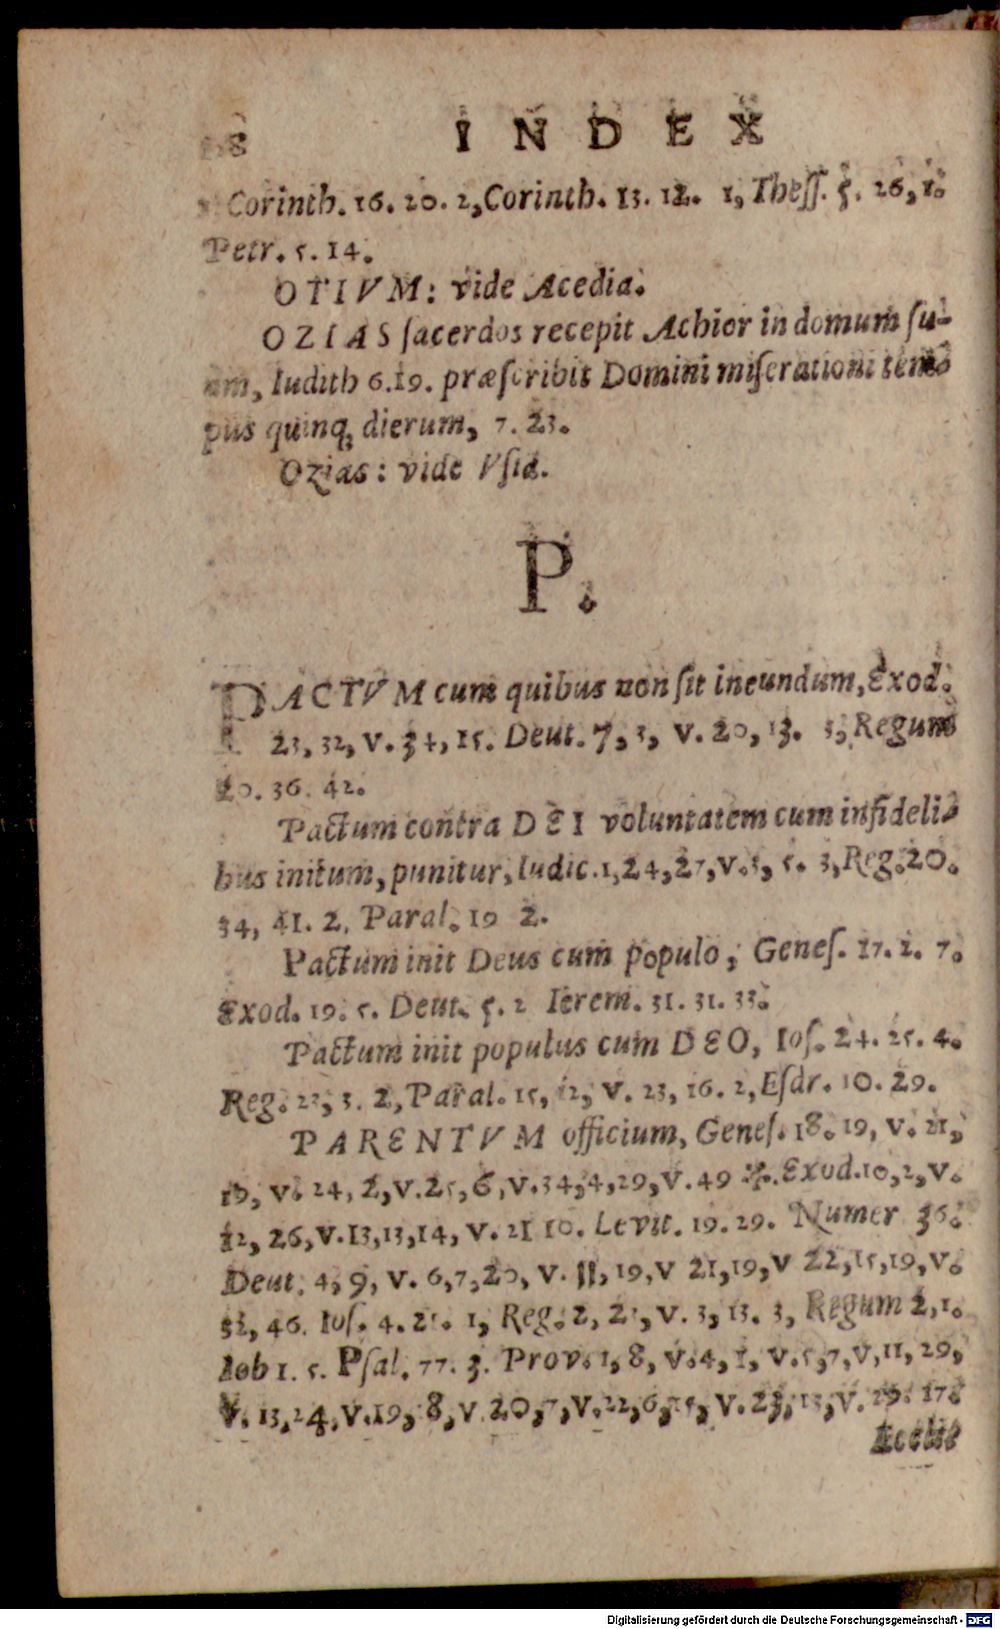 8 INDEX
Corinth. 16. 20. 2, Corinth. 13. 12. 1, Theſſ. 5. 26, 1.
Petr. 5. 14.
OTIVM: vide Acedia.
OZIAS ſacerdos recepit Achior in domum ſu-
am, Iudith 6. 19. præſcribit Domini miſerationi tem-
pus quinq; dierum, 7. 23.
Ozias: vide Vſia.
P.
PACTVM cum quibus non ſit ineundum, Exod.
23, 32, v. 34, 15. Deut. 7, 3, v. 20, 13. 3, Regum
20. 36. 42.
Pactum contra DEI voluntatem cum infideli-
bus initum, punitur, Iudic. 1, 24, 27, v. 3, 5. 3, Reg. 20.
34, 41. 2. Paral. 19 2.
Pactum init Deus cum populo, Geneſ. 17. 2. 7.
Exod. 19. 5. Deut. 5. 2 Ierem. 31. 31. 33.
Pactum init populus cum DEO, Ioſ. 24. 25. 4.
Reg. 23, 3. 2, Paral. 15, 12, v. 23, 16. 2, Eſdr. 10. 29.
PARENTVM officium, Geneſ. 18. 19, v. 21,
19, v. 24, 2, v. 25, 6, v. 34, 4, 29, v. 49 *. Exod. 10, 2, v.
12, 26, v. 13, 13, 14, v. 21 10. Levit. 19. 29. Numer 36.
Deut. 4, 9, v. 6, 7, 20, v. 11, 19, v 21, 19, v 22, 15, 19, v.
32, 46. Ioſ. 4. 21. 1, Reg. 2, 23, v. 3, 13. 3, Regum 2, 1.
Iob 1. 5. Pſal. 77. 3. Prov. 1, 8, v. 4, 1, v. 5, 7, v, 11, 29,
v. 13, 24, v. 19, 8, v 20, 7, v. 22, 6, 15, v. 23, 13, v. 29. 17.
Eccleſ
Digitalisierung gefördert durch die Deutsche Forschungsgemeinschaft - DFG